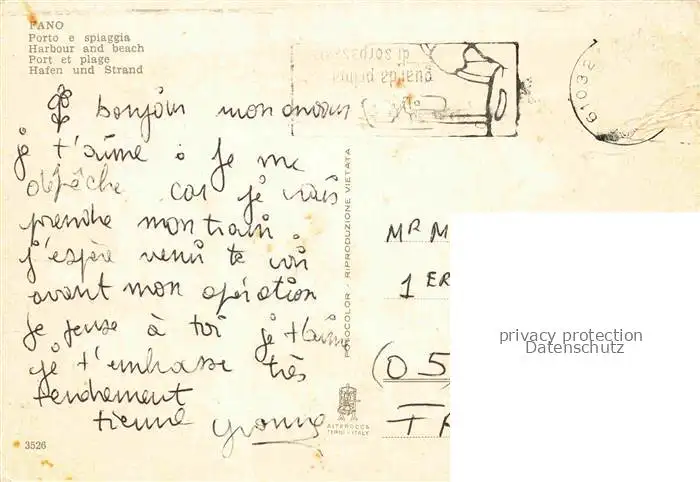 FANO
Porto e spiaggia
Harbour and beach
Port et plage
Hafen und Strand
guarda prima
di sorpassare
61032
bonjour mon amour
je t'aime je me
dépêche car je vais
prendre mon train
j'espère venir te voir
avant mon opération
je pense à toi je t'aime
je t'embrasse très
tendrement
tienne Yvonne
FOTOCOLOR - RIPRODUZIONE VIETATA
MR M
1 ER
(05
FR
ALTEROCCA
TERNI - ITALY
3526
privacy protection
Datenschutz